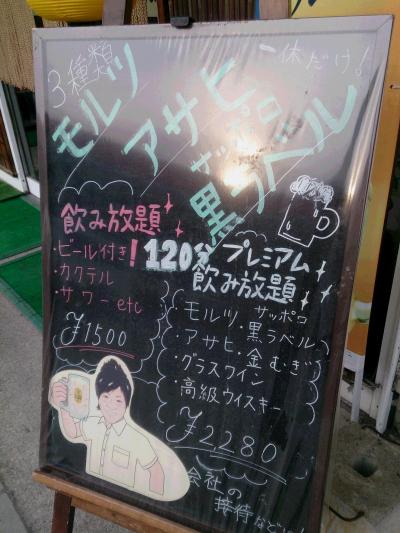 3種類
一休だけ！
モルツ
アサヒ
サッポロ
黒ラベル
飲み放題
・ビール付き！
・カクテル
・サワー etc
¥1500
120分
プレミアム
飲み放題
・モルツ・サッポロ黒ラベル
・アサヒ・金むぎ
・グラスワイン
・高級ウイスキー
¥2280
会社の
接待などに！